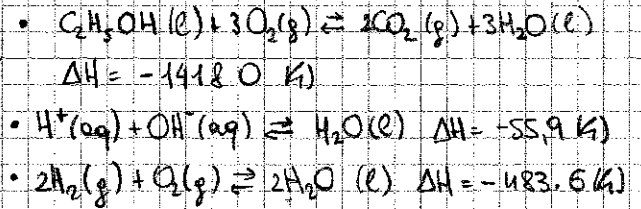 • C₂H₅OH (l) + 3O₂(g) ⇄ 2CO₂ (g) + 3H₂O(l)
ΔH = -1418 0 KJ
• H⁺(aq) + OH⁻(aq) ⇄ H₂O(l) ΔH = -55,9 KJ
• 2H₂(g) + O₂(g) ⇄ 2H₂O (l) ΔH = -483.6 KJ